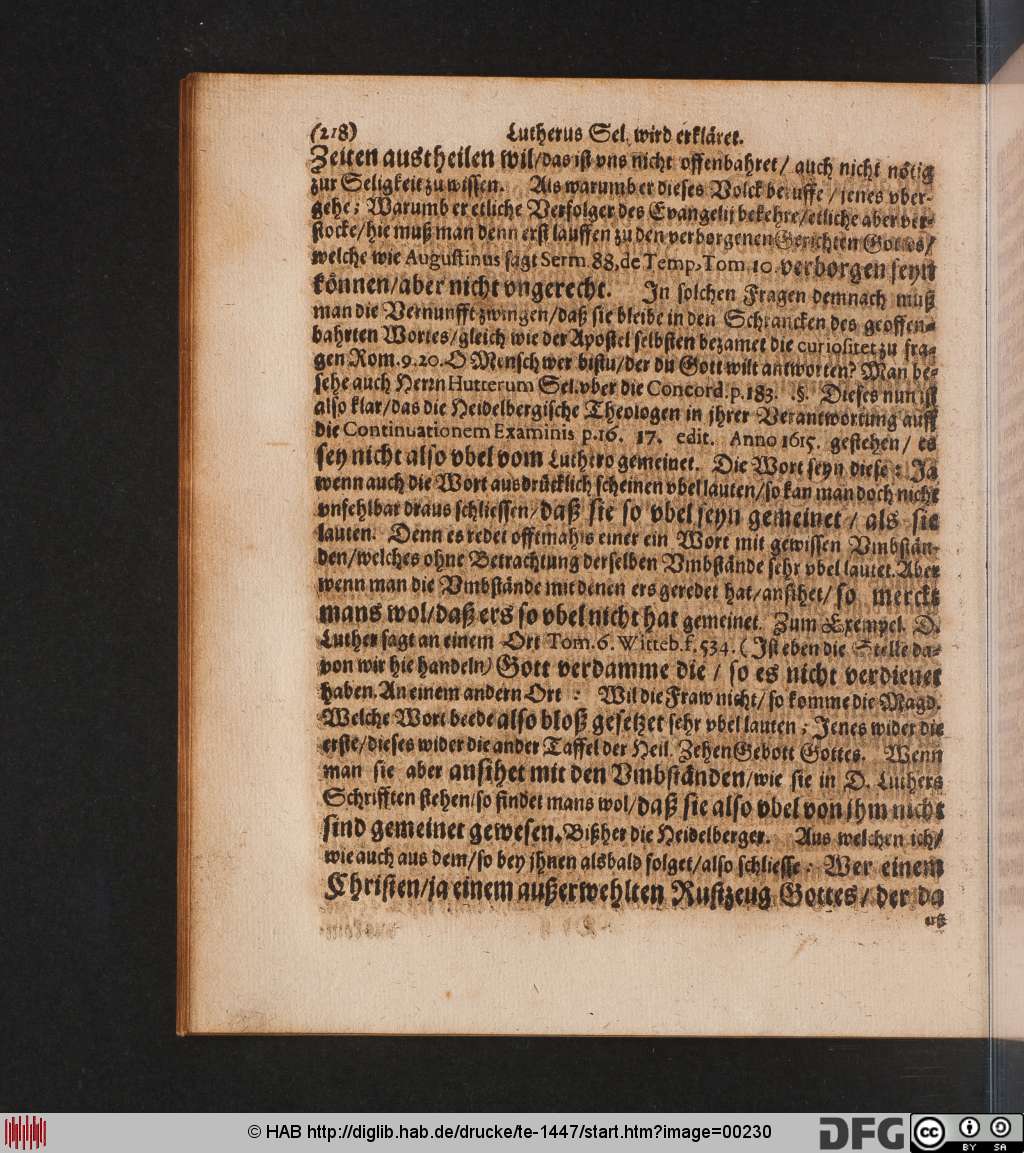 (218) Lutherus Sel. wird erkläret.
Zeiten austheilen wil/das ist vns nicht offenbahret/ auch nicht nötig
zur Seligkeit zu wissen. Als warumb er dieses Volck beruffe / jenes vber-
gehe; Warumb er etliche Verfolger des Evangelij bekehre/etliche aber ver-
stocke/hie muß man denn erst lauffen zu den verborgenen Gerichten Gottes/
welche wie Augustinus sagt Serm. 88, de Temp, Tom. 10. verborgen seyn
können/aber nicht vngerecht. In solchen Fragen demnach muß
man die Vernunfft zwingen/daß sie bleibe in den Schrancken des geoffen-
bahrten Wortes/gleich wie der Apostel selbsten bezamet die curiositet zu fra-
gen Rom. 9. 20. O Mensch wer bistu/der du Gott wilt antworten? Man be-
sehe auch Herrn Hutterum Sel. vber die Concord. p. 183. §. Dieses nun ist
also klar/das die Heidelbergische Theologen in jhrer Verantwortung auff
die Continuationem Examinis p. 16. 17. edit. Anno 1615. gestehen/ es
sey nicht also vbel vom Luthero gemeinet. Die Wort seyn diese: Ja
wenn auch die Wort ausdrücklich scheinen vbel lauten/so kan man doch nicht
vnfehlbar draus schliessen/daß sie so vbel seyn gemeinet / als sie
lauten. Denn es redet offtmahls einer ein Wort mit gewissen Vmbstän-
den/welches ohne Betrachtung derselben Vmbstände sehr vbel lautet. Aber
wenn man die Vmbstände mit denen ers geredet hat/ansihet/ so merckt
mans wol/daß ers so vbel nicht hat gemeinet. Zum Exempel. D.
Luther sagt an einem Ort Tom. 6. Witteb. f. 534. (Ist eben die Stelle da-
von wir hie handeln) Gott verdamme die / so es nicht verdienet
haben. An einem andern Ort : Wil die Fraw nicht/ so komme die Magd.
Welche Wort beede also bloß gesetzet sehr vbel lauten; Jenes wider die
erste/dieses wider die ander Taffel der Heil. Zehen Gebott Gottes. Wenn
man sie aber ansihet mit den Vmbständen/wie sie in D. Luthers
Schrifften stehen/so findet mans wol/daß sie also vbel von jhm nicht
sind gemeinet gewesen. Bißher die Heidelberger. Aus welchen ich/
wie auch aus dem/so bey jhnen alsbald folget/also schliesse: Wer einem
Christen/ja einem außerwehlten Rustzeug Gottes/ der da
© HAB http://diglib.hab.de/drucke/te-1447/start.htm?image=00230
DFG cc BY SA